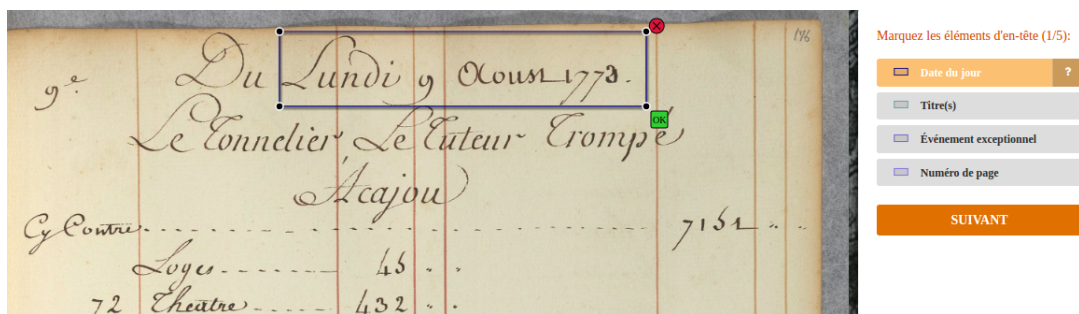 176
9e Du Lundi 9 Aoust 1773.
Le Tonnelier Le Tuteur Trompé
Acajou
Cy Contre 7151
Loges 45
72 Theatre 432
OK
Marquez les éléments d'en-tête (1/5):
Date du jour ?
Titre(s)
Événement exceptionnel
Numéro de page
SUIVANT